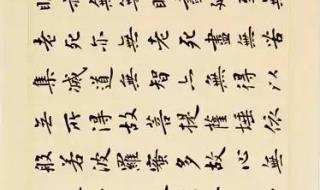 老死亦無老死盡無苦
集滅道無智亦無得以
無所得故菩提薩埵依
般若波羅蜜多故心無